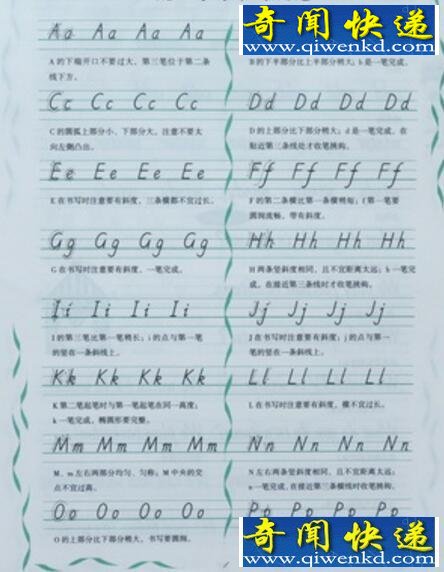 Aa Aa Aa Aa
奇闻快递
www.qiwenkd.com
A 的下端开口不要过大，第三笔位于第二条
线下方。
B的下半部分比上半部分稍大；b是一笔完成。
Cc Cc Cc Cc
Dd Dd Dd Dd
C 的圆弧上部分小、下部分大，注意不要太
向左侧凸出。
D的上部分比下部分稍大；d是一笔完成，在
贴近第三条线处才收笔挑钩。
Ee Ee Ee Ee
Ff Ff Ff Ff
E 在书写时注意要有斜度，三条横都不宜过长。
F的第二条横比第一条横稍短；f第一笔要
圆润流畅，带有斜度。
Gg Gg Gg Gg
Hh Hh Hh Hh
G 在书写时注意要有斜度，一笔完成。
H 两条竖斜度相同，且不宜距离太远；h一笔完
成，在接近第三条线时才收笔挑钩。
Ii Ii Ii Ii
Jj Jj Jj Jj
I 的第三笔比第一笔稍长；i的点与第一笔
的竖在一条斜线上。
J 在书写时注意要有斜度；j的点与第一
笔的竖在一条斜线上。
Kk Kk Kk Kk
Ll Ll Ll Ll
K 第二笔起笔时与第一笔起笔在同一高度；
k一笔完成，椭圆形要完整。
L 在书写时注意要有斜度，横不宜过长。
Mm Mm Mm Mm
Nn Nn Nn Nn
M、m 左右两部分均匀、匀称；M 中央的交
点不宜过高。
N 左右两条竖斜度相同，且不宜距离太远；
n一笔完成，在接近第三条线时收笔挑钩。
Oo Oo Oo Oo
Pp Pp Pp Pp
O 的上部分比下部分稍大，书写要圆润。
奇闻快递
www.qiwenkd.com